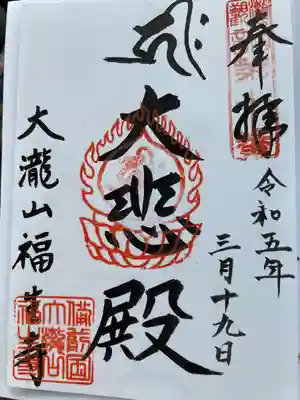 奉拝
令和五年
三月十九日
大悲殿
大瀧山福生寺
備前国
大瀧山
福生寺